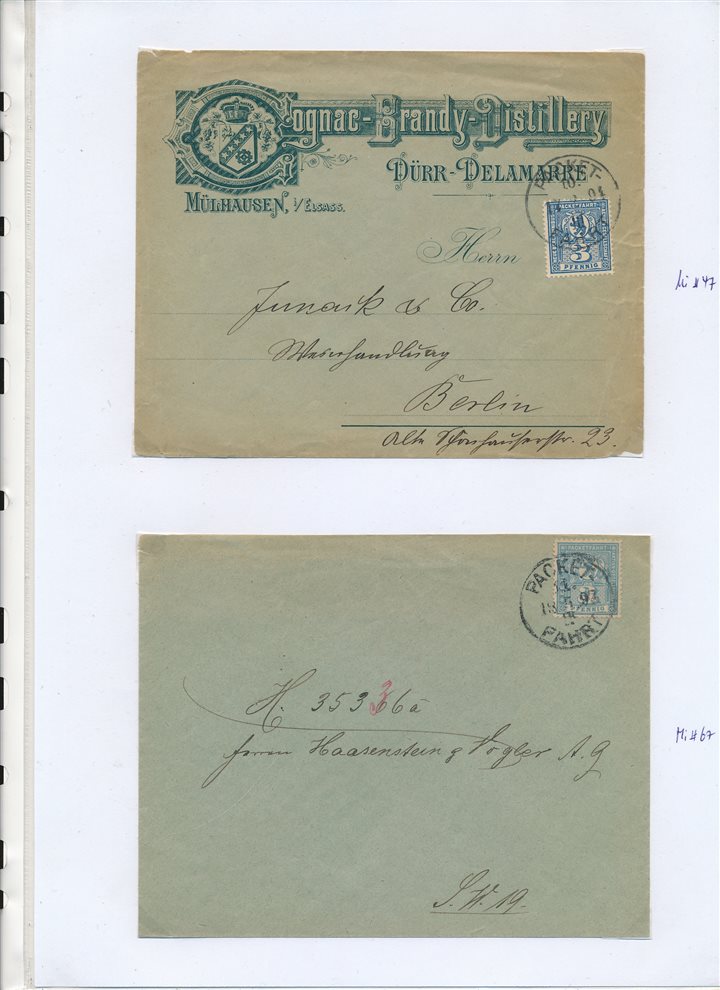 Cognac-Brandy-Distillery
DÜRR-DELAMARRE
MÜLHAUSEN, i/ELSASS.
PACKET-
PACKETFAHRT
3
PFENNIG
Herrn
Junack & Co.
Weinhandlung
Berlin
Alte Schönhauserstr. 23.
Mi # 47
PACKETFAHRT
PFENNIG
PACKET-
FAHRT
H. 35366a
3
Herren Haasenstein & Vogler A. G
S. W. 19.
Mi # 67